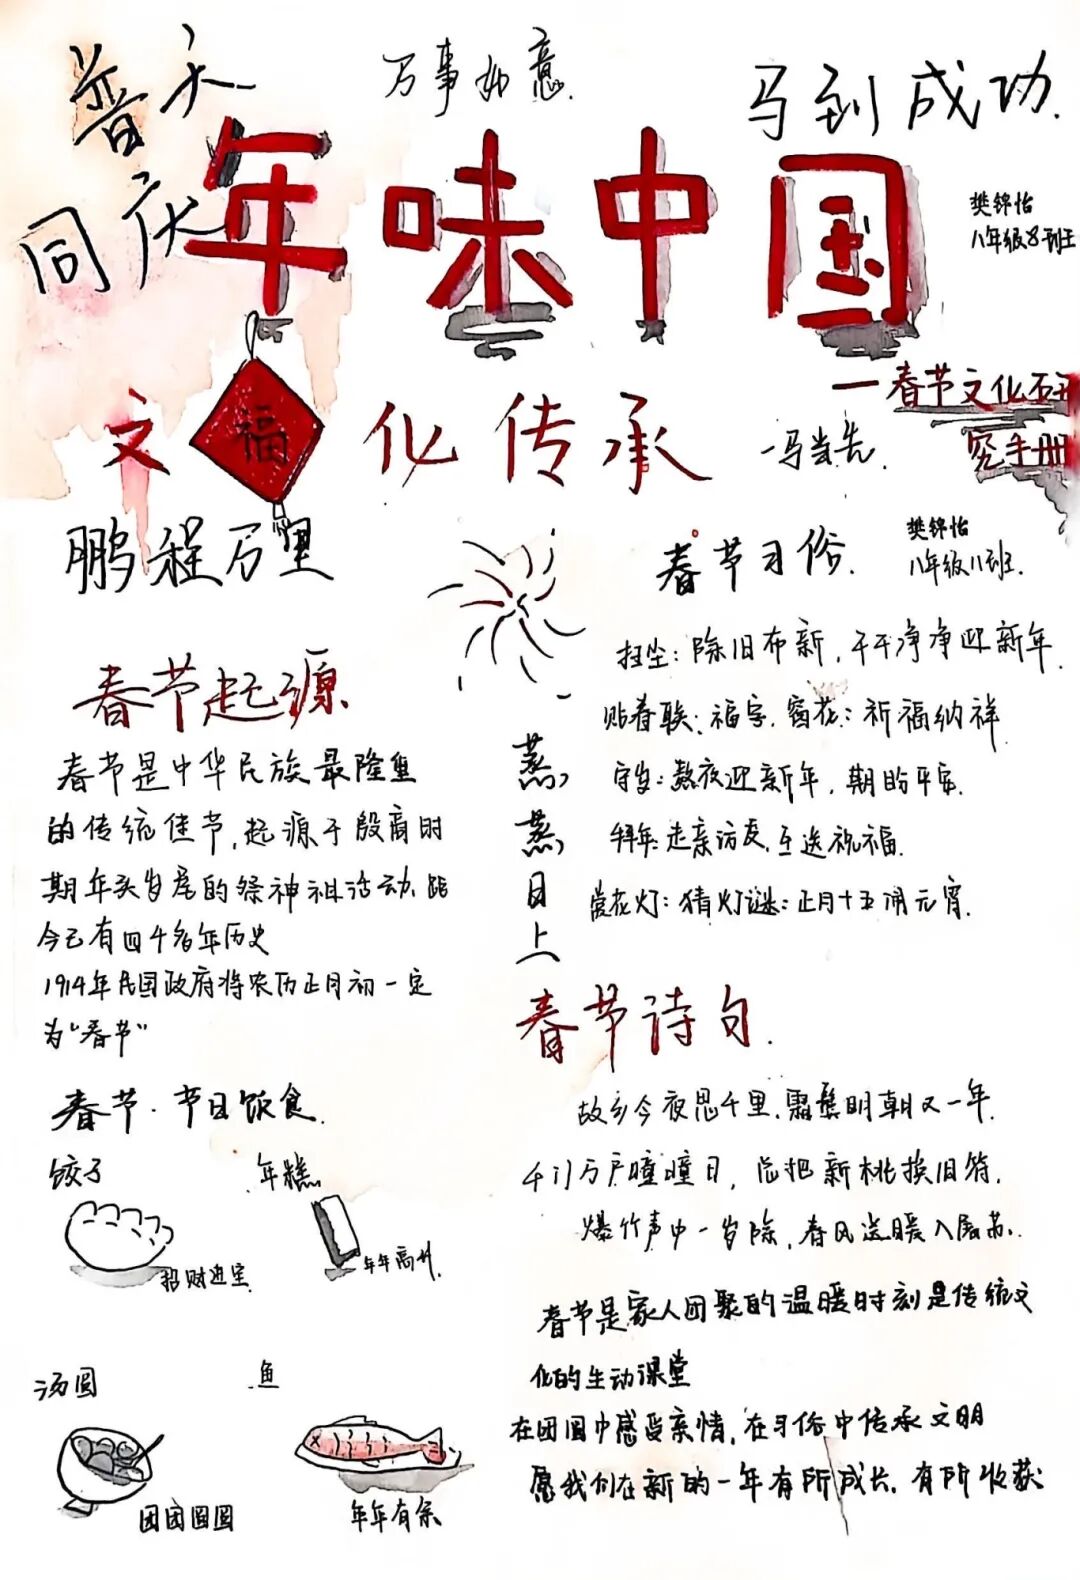 普天
同庆
万事如意.
马到成功.
年味中国
樊锦怡
八年级8班
文化传承
福
—春节文化研
究手册
一马当先.
鹏程万里
春节习俗.
樊锦怡
八年级八班.
扫尘:除旧布新,干干净净迎新年.
贴春联:福字.窗花:祈福纳祥
守岁:熬夜迎新年,期盼平安.
拜年:走亲访友.互送祝福.
赏花灯:猜灯谜:正月十五闹元宵.
蒸蒸日上
春节起源.
春节是中华民族最隆重
的传统佳节,起源于殷商时
期年头岁尾的祭神祖活动.距
今已有四千多年历史
1914年民国政府将农历正月初一定
为"春节"
春节诗句.
故乡今夜思千里.霜鬓明朝又一年.
千门万户曈曈日,总把新桃换旧符.
爆竹声中一岁除,春风送暖入屠苏.
春节是家人团聚的温暖时刻是传统文
化的生动课堂
在团圆中感受亲情,在习俗中传承文明
愿我们在新的一年有所成长.有所收获
春节·节日饮食.
饺子
招财进宝
年糕
年年高升
汤圆
团团圆圆
鱼
年年有余